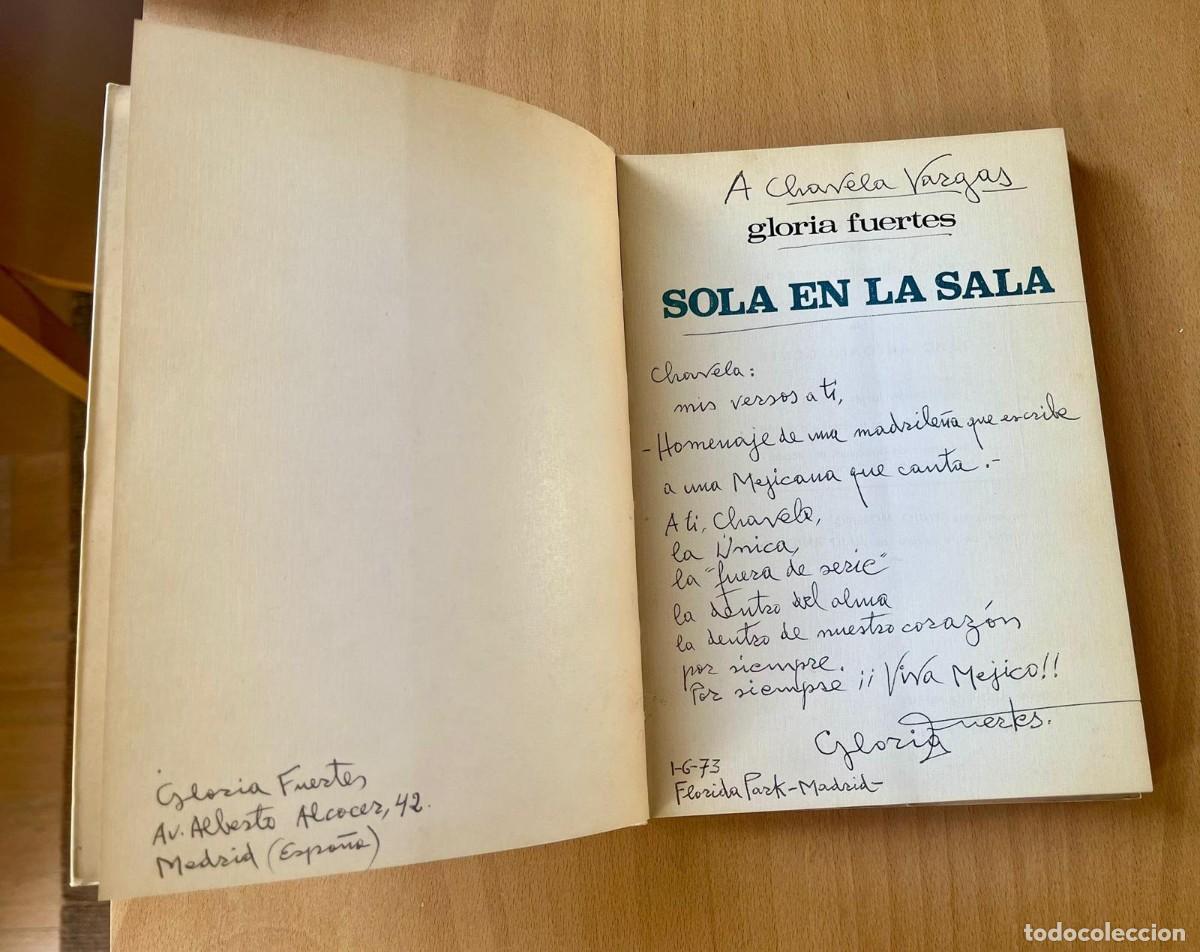 Gloria Fuertes
Av. Alberto Alcocer, 42.
Madrid (España)
A Chavela Vargas
gloria fuertes
SOLA EN LA SALA
Chavela:
mis versos a ti,
-Homenaje de una madrileña que escribe
a una Mejicana que canta.-
A ti, Chavela,
la Única,
la "fuera de serie"
la dentro del alma
la dentro de nuestro corazón
por siempre.
Por siempre ¡¡Viva Mejico!!
Gloria Fuertes.
1-6-73
Florida Park-Madrid-
todocoleccion